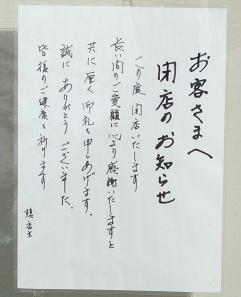 お客さまへ
閉店のお知らせ
この度 閉店いたします
長い間のご愛顧に心より感謝いたしますと
共に厚く御礼を申しあげます。
誠に ありがとう ございました。
皆様のご健康を祈ります
店主